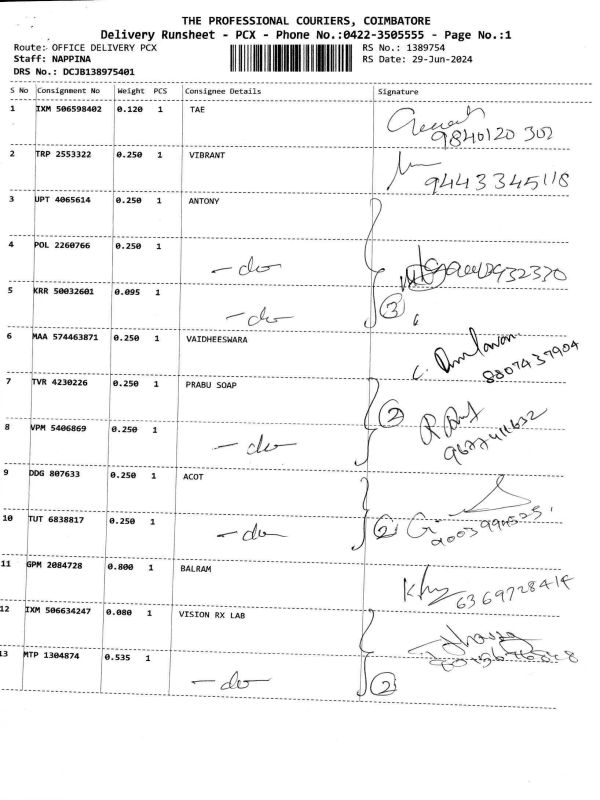 THE PROFESSIONAL COURIERS, COIMBATORE
Delivery Runsheet - PCX - Phone No.:0422-3505555 - Page No.:1
Route: OFFICE DELIVERY PCX RS No.: 1389754
Staff: NAPPINA RS Date: 29-Jun-2024
DRS No.: DCJB138975401
S No Consignment No Weight PCS Consignee Details Signature
1 IXM 506598402 0.120 1 TAE
9840120 302
2 TRP 2553322 0.250 1 VIBRANT
9443345118
3 UPT 4065614 0.250 1 ANTONY
4 POL 2260766 0.250 1
-do
5 KRR 50032601 0.095 1
-do 3
6 MAA 574463871 0.250 1 VAIDHEESWARA
8807437904
7 TVR 4230226 0.250 1 PRABU SOAP
2
8 VPM 5406869 0.250 1
-do 9677411632
9 DDG 807633 0.250 1 ACOT
10 TUT 6838817 0.250 1
-do 2
11 GPM 2084728 0.800 1 BALRAM
6369728414
12 IXM 506634247 0.080 1 VISION RX LAB
13 MTP 1304874 0.535 1
-do 2